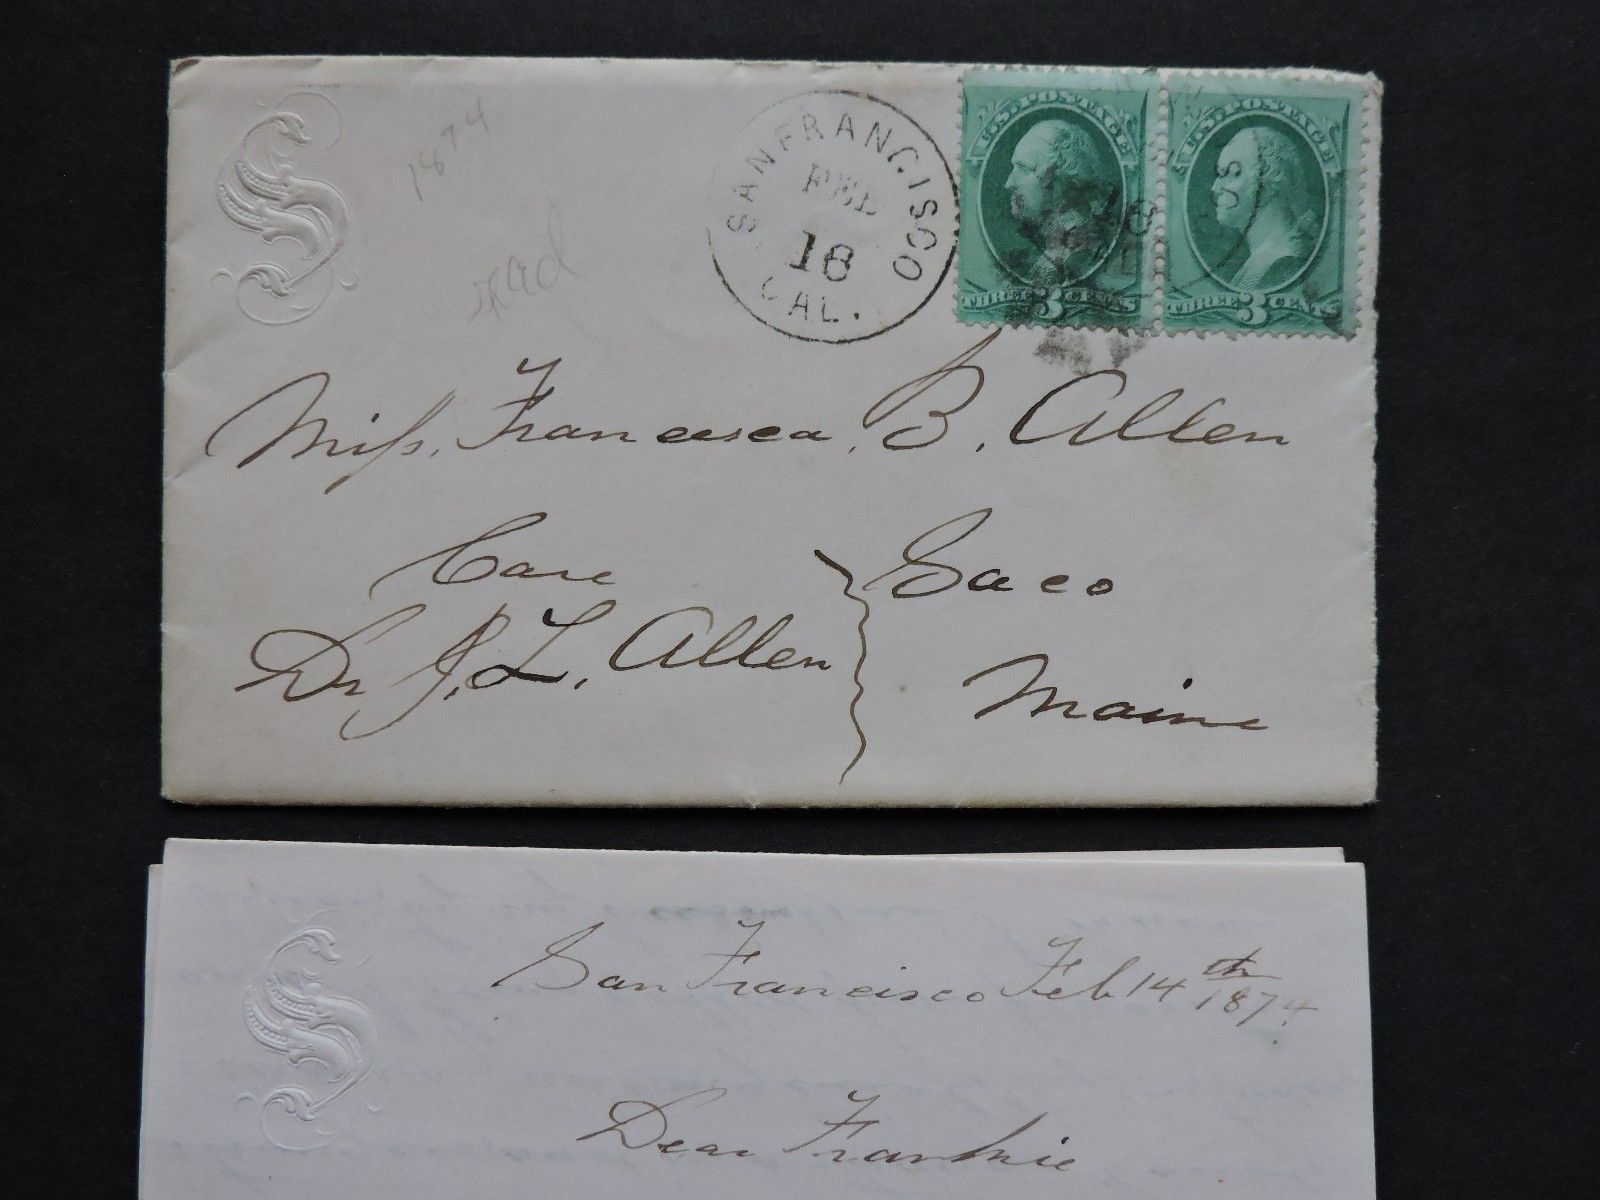 S
1874
read
SAN FRANCISCO
FEB
18
CAL.
U.S. POSTAGE
THREE 3 CENTS
U.S. POSTAGE
THREE 3 CENTS
18
CAL
Miss. Francesca. B. Allen
Care
Dr J. L. Allen
Saco
Maine
S
San Francisco Feb 14th 1874.
Dear Frankie